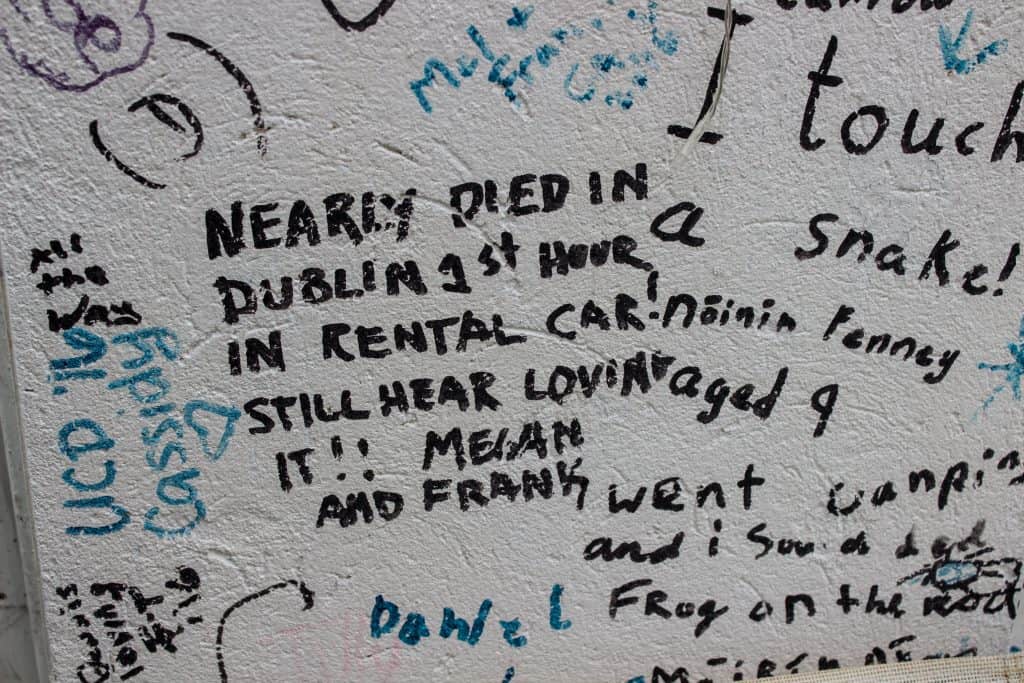 touch
a snake!
Nóinín Fenney
aged 9
NEARLY DIED IN
DUBLIN 1st HOUR
IN RENTAL CAR!
STILL HEAR LOVIN'
IT!! MEGAN
AND FRANK
All
the
Way
UCD '16
Cassidy
went campin
and i saw a dead
Frog on the
Daniel